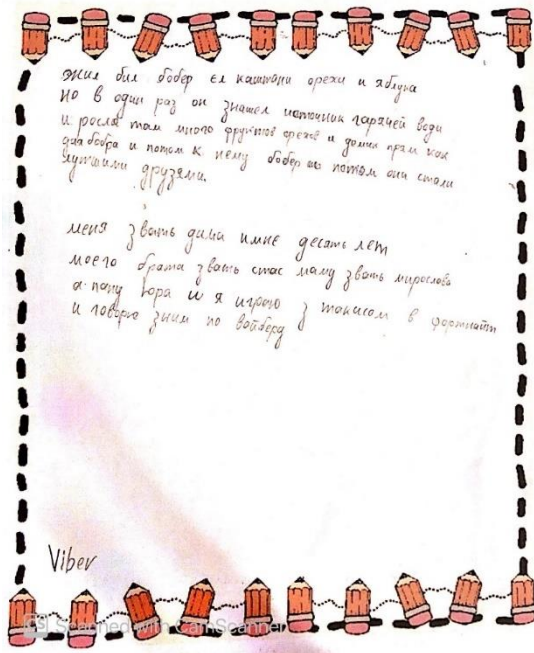 жил бил бобер ел каштани орехи и яблука
но в один раз он знашел источник гарячей води
и росля там много фруктов орехов и домик прям как
для бобра и потом к нему бобер потом они стали
лутшими друзями.
меня звать дима имне десять лет
моего брата звать стас маму звать мирослава
а папу юра и я играю з танасом в фортнайт
и говорю зним по вайберу
Viber
CS Scanned with CamScanner